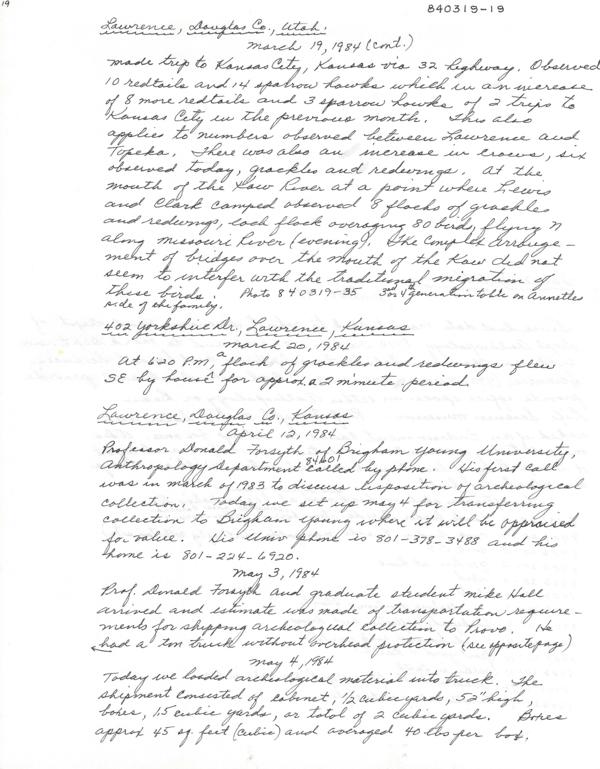 19
840319-19
Lawrence, Douglas Co., Utah.
March 19, 1984 (cont.)
made trip to Kansas City, Kansas via 32 highway. Observed
10 redtails and 14 sparrow hawks which in an increase
of 8 more redtails and 3 sparrow hawks of 2 trips to
Kansas City in the previous month. This also
applies to numbers observed between Lawrence and
Topeka. There was also an increase in crows, six
observed today, grackles and redwings. At the
mouth of the Kaw River at a point where Lewis
and Clark camped observed 8 flocks of grackles
and redwings, each flock averaging 80 birds, flying N
along Missouri River (evening). The complex arrange-
ment of bridges over the mouth of the Kaw did not
seem to interfer with the traditional migration of
these birds. Photo 840319-35 3rd 4th generation table on Annettes
side of the family.
402 Yorkshire Dr., Lawrence, Kansas
March 20, 1984
At 6:20 P.M. a flock of grackles and redwings flew
SE by house for approx a 2 minute period
Lawrence, Douglas Co., Kansas
April 12, 1984
Professor Donald Forsyth of Brigham Young University,
Anthropology Department 84601 called by phone. His first call
was in March of 1983 to discuss disposition of archeological
collection. Today we set up May 4 for transferring
collection to Brigham Young where it will be appraised
for value. His Univ phone is 801-378-3488 and his
home is 801-224-6920.
May 3, 1984
Prof. Donald Forsyth and graduate student Mike Hall
arrived and estimate was made of transportation require-
ments for shipping archeological collection to Provo. He
had a ton truck without overhead protection (see opposite page)
May 4, 1984
Today we loaded archeological material into truck. The
shipment consisted of cabinet, 1/2 cubic yards, 52" high,
boxes, 1.5 cubic yards, or total of 2 cubic yards. Boxes
approx 45 sq. feet (cubic) and averaged 40 lbs per box.